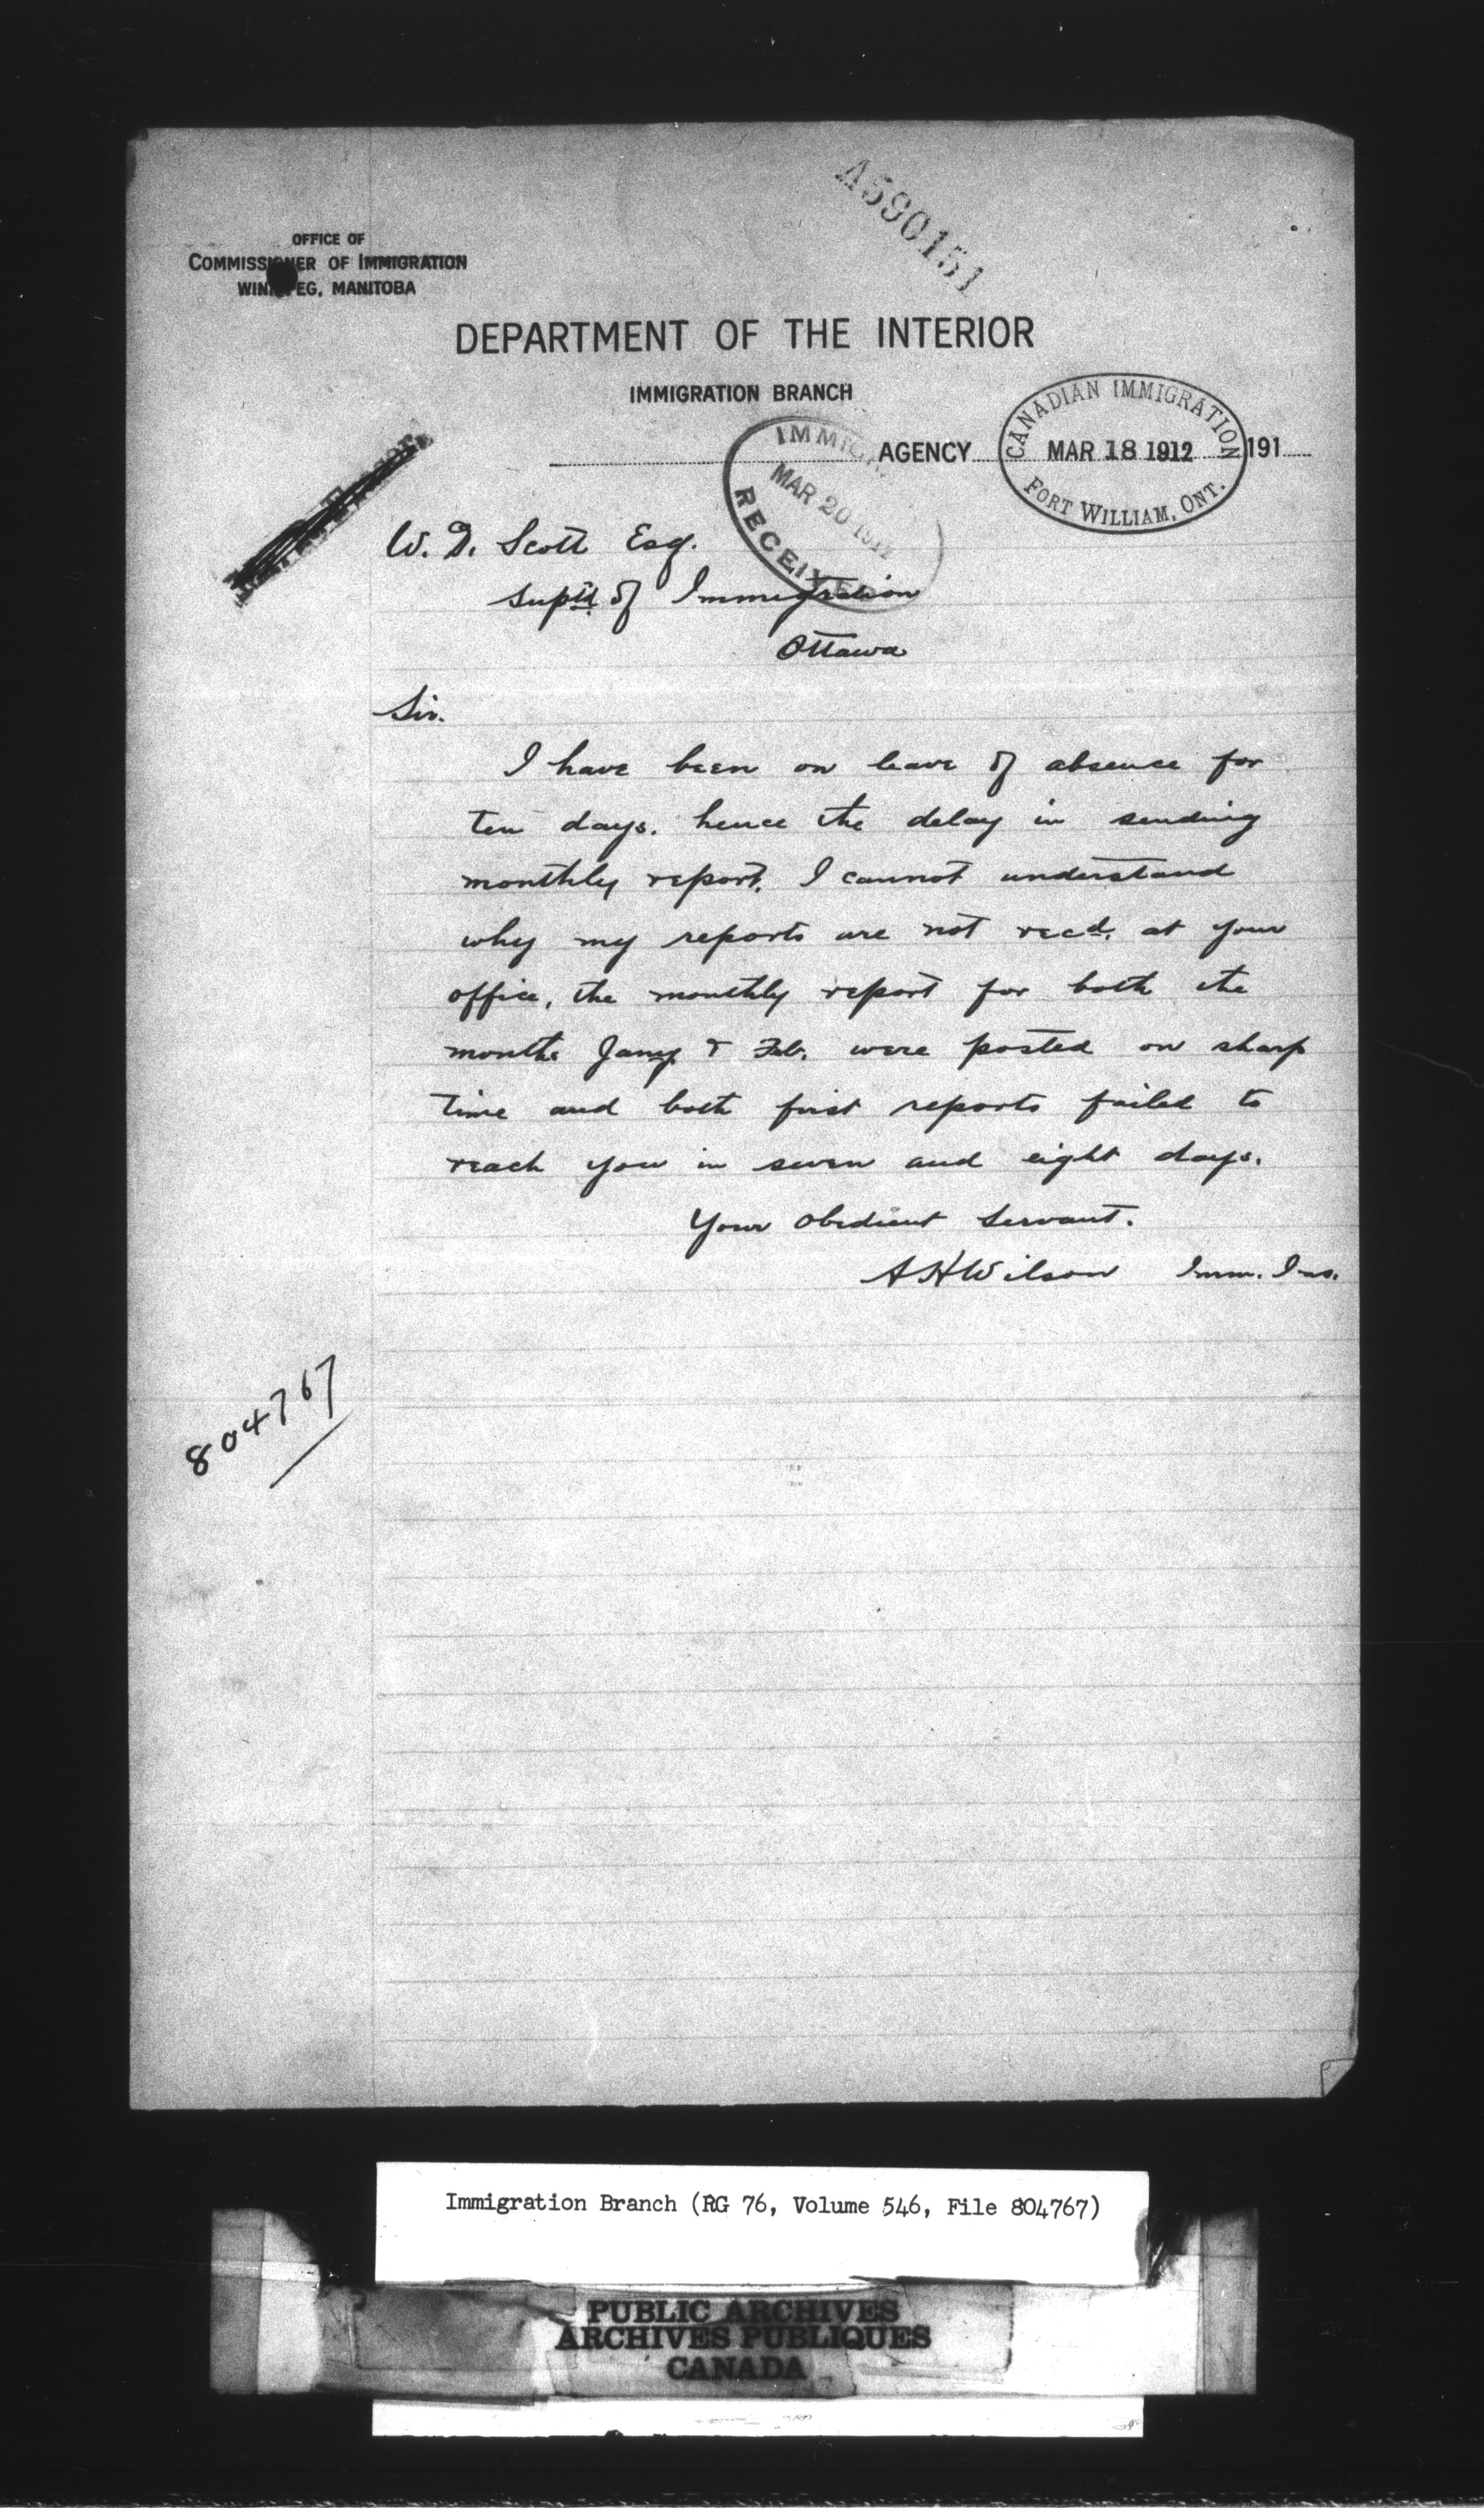 A590151
OFFICE OF
COMMISSIONER OF IMMIGRATION
WINNIPEG, MANITOBA
DEPARTMENT OF THE INTERIOR
IMMIGRATION BRANCH
AGENCY 191
CANADIAN IMMIGRATION
MAR 18 1912
FORT WILLIAM, ONT.
MAR 20 1912
RECEIVED
W. D. Scott Esq.
Suptd of Immigration
Ottawa
Sir.
I have been on leave of absence for
ten days. hence the delay in sending
monthly report. I cannot understand
why my reports are not recd. at your
office, the monthly report for both the
months Jany & Feb. were posted on sharp
time and both first reports failed to
reach you in seven and eight days.
Your obedient Servant.
A H Wilson Imm. Ins.
804767
Immigration Branch (RG 76, Volume 546, File 804767)
PUBLIC ARCHIVES
ARCHIVES PUBLIQUES
CANADA